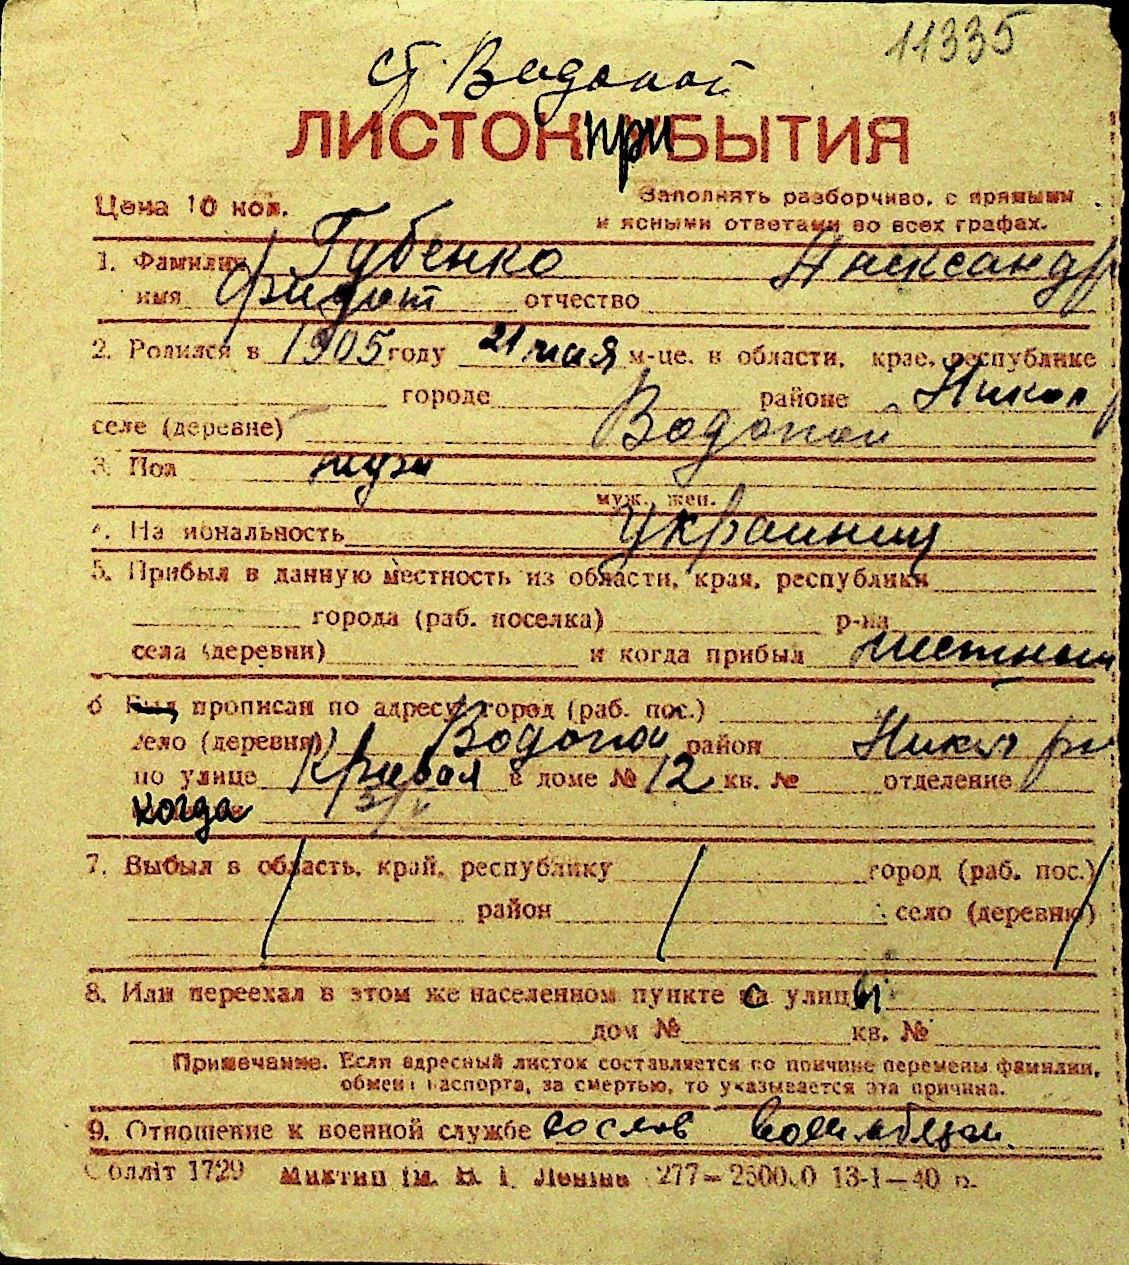 11335
ст. Водопой
ЛИСТОК ПРИБЫТИЯ
Цена 10 коп.
Заполнять разборчиво, с прямыми
и ясными ответами во всех графах.
1. Фамилия Губенко Александр
имя Фидот отчество
2. Родился в 1905 году 21 мая м-це. в области, крае, республике
городе районе Никол
селе (деревне) Водопой
3. Пол муж
муж., жен.
4. На иональность украинец
5. Прибыл в данную местность из области, края, республики
города (раб. поселка) р-на
села (деревни) и когда прибыл местный
6 прописан по адресу город (раб. пос.)
село (деревня) Водопой район Никол
по улице Кривая в доме № 12 кв. № отделение
когда
7. Выбыл в область, край, республику город (раб. пос.)
район село (деревню)
8. Или переехал в этом же населенном пункте с улицы
дом № кв. №
Примечание. Если адресный листок составляется по причине перемены фамилии,
обмена паспорта, за смертью, то указывается эта причина.
9. Отношение к военной службе
Обліт 1729 Миктип ім. В. І. Леніна 277—250000 13-1—40 р.